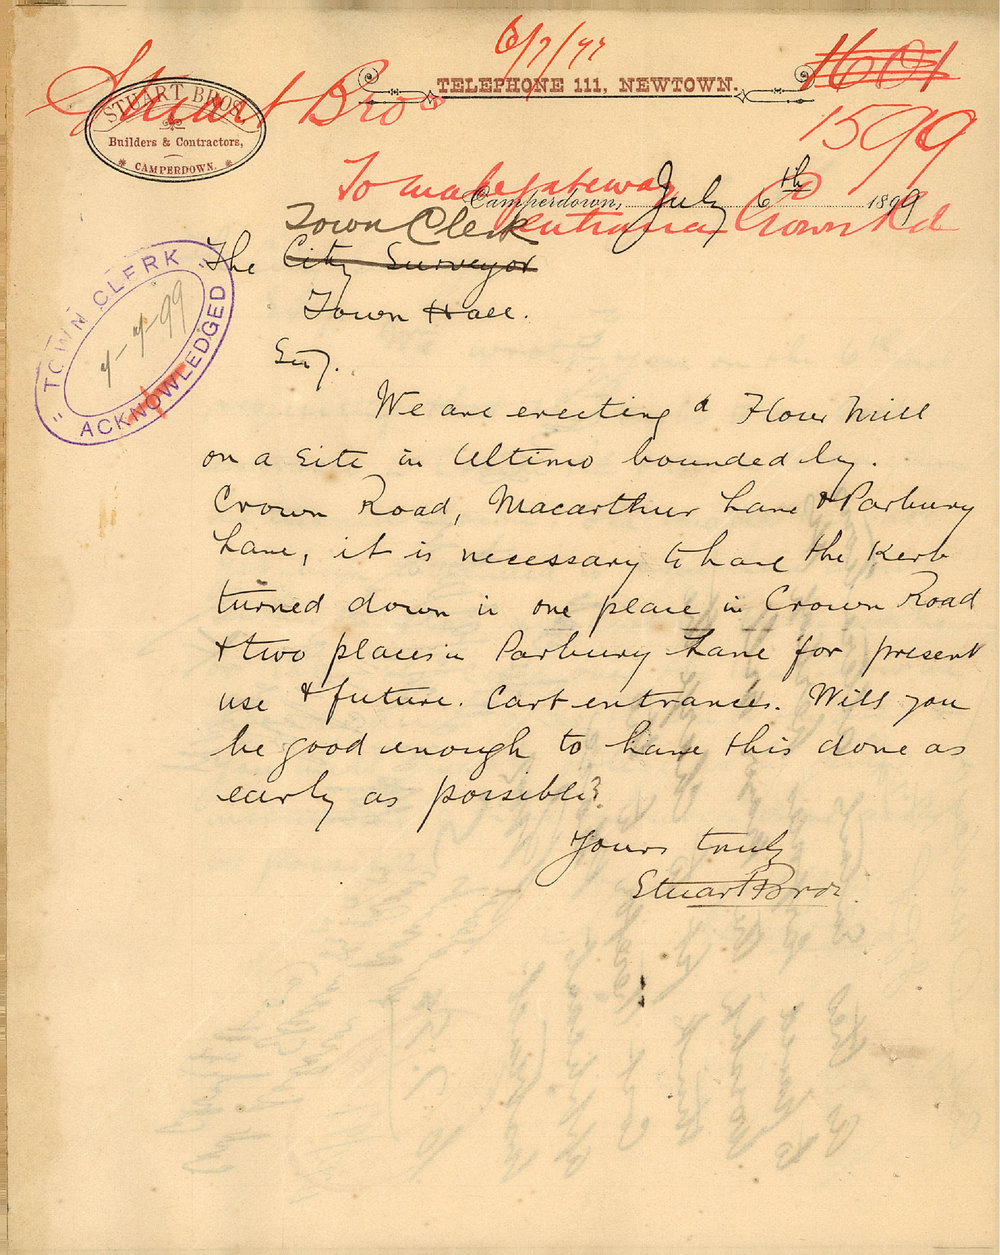 6/7/99
Stuart Bros
TELEPHONE 111, NEWTOWN.
1601
1599
STUART BROS.
Builders & Contractors,
CAMPERDOWN.
To make gateway
entrance Crown Rd
Camperdown, July 6th 1899
Town Clerk
The City Surveyor
Town Hall.
Sir,
TOWN CLERK
7-7-99
ACKNOWLEDGED
We are erecting a Flour Mill
on a site in Ultimo bounded by.
Crown Road, Macarthur Lane & Parbury
Lane, it is necessary to have the Kerb
turned down in one place in Crown Road
& two places in Parbury Lane for present
use & future. Cart entrances. Will you
be good enough to have this done as
early as possible?
Yours truly
Stuart Bros.